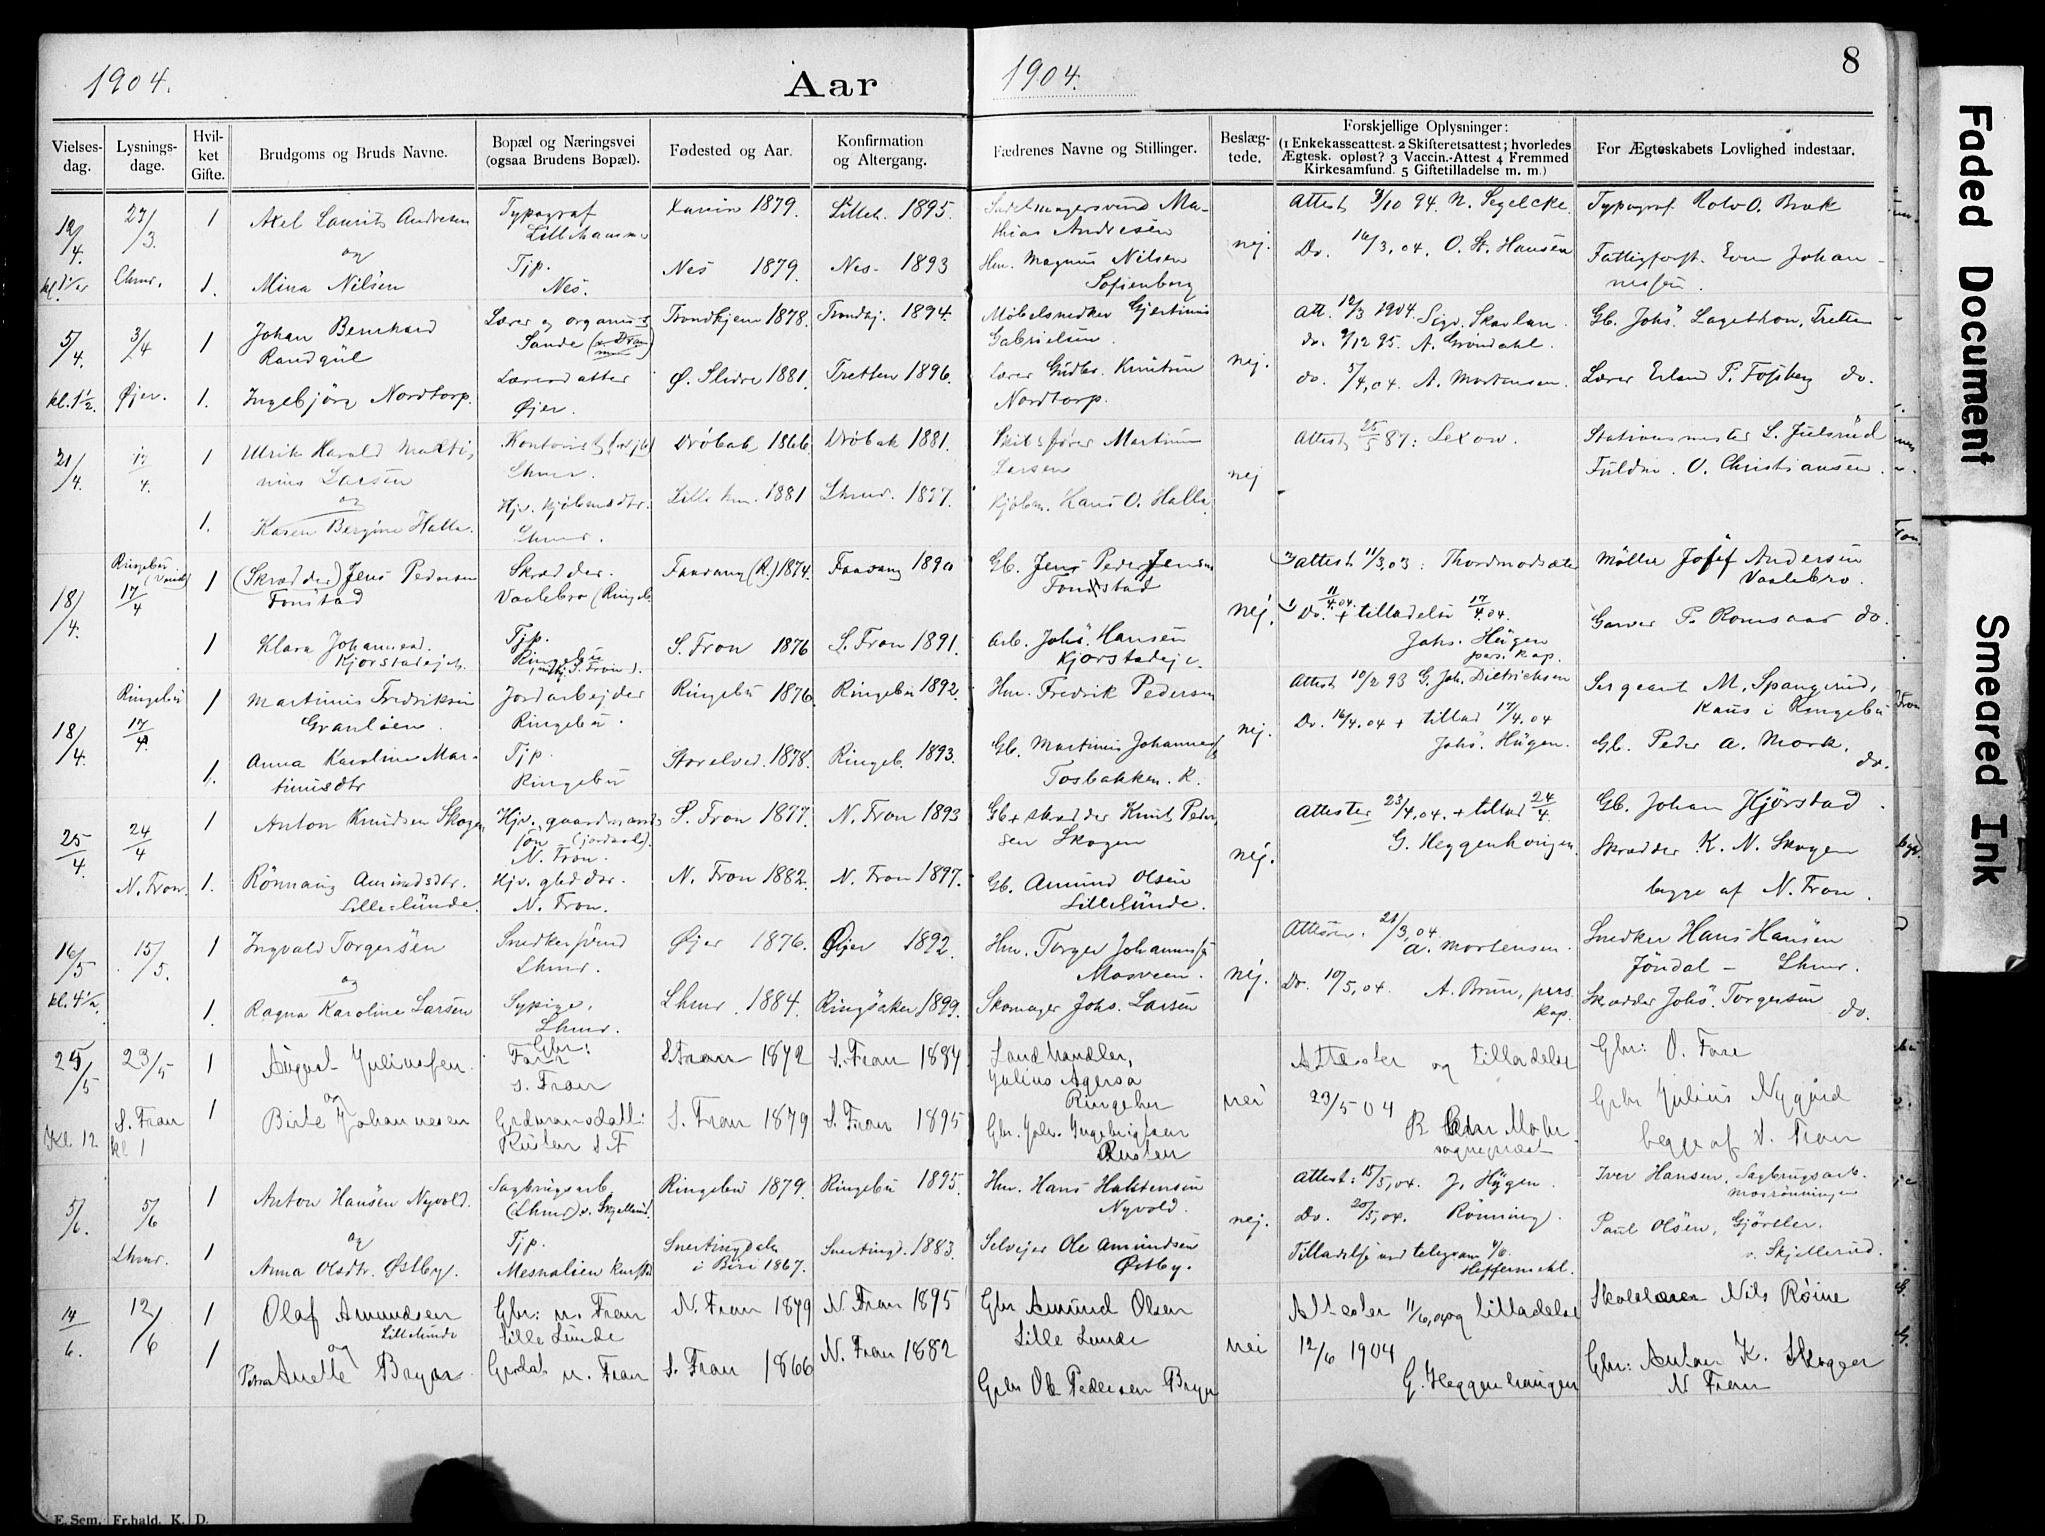 1904.
Aar
1904.
8
Vielses-
dag.
Lysnings-
dage.
Hvil-
ket
Gifte.
Brudgoms og Bruds Navne.
Bopæl og Næringsvei
(ogsaa Brudens Bopæl).
Fødested og Aar.
Konfirmation
og Altergang.
Fædrenes Navne og Stillinger.
Beslæg-
tede.
Forskjellige Oplysninger:
(1 Enkekasseattest. 2 Skifteretsattest; hvorledes
Ægtesk. opløst? 3 Vaccin.-Attest 4 Fremmed
Kirkesamfund. 5 Giftetilladelse m. m.)
For Ægteskabets Lovlighed indestaar.
19/4.
27/3.
Lhmr.
1
Axel Laurits Andresen
og
Typograf
1879.
Lilleh. 1895.
Andresen
nej.
Attest 9/10 94. N. Segelcke.
Typograf Rolv O. Bræk
1.
Mina Nilsen
Tjp.
Nes.
Nes 1879.
Nes 1893
Hm. Magnus Nilsen
Sofienberg
Do. 16/3, 04. O. St. Hansen
Fattigforst. Even Johan-
nessen.
5/4.
kl. 1 1/2.
3/4
Øjer.
1
Johan Bernhard
Randgül
Lærer og organist
Sande
Trondhjem 1878.
Trondhj. 1894.
Møbelsnedker Gjertinius
Gabrielsen
nej.
Att. 12/3 1904. Sigv. Skavlan.
do. 9/12 95. A. Grøndahl.
Gb. Johs. Lagethon, Tretten
1.
Ingebjörg Nordtorp.
Lærerdatter
Øjer.
Ø. Slidre 1881.
Tretten 1896.
Lærer Gudbr. Knutsen
Nordtorp.
do. 5/4, 04. A. Mortensen.
Lærer Erland P. Fossberg do.
21/4.
17/4.
1
Ulrik Harald Marti-
nius Larsen
og
Kontorist
Lhmr.
Drøbak 1866.
Drøbak 1881.
Skibsfører Martinus
Larsen
nej
Attest 25/5 87: Lexow.
Stationsmester L. Julsrud
Fuldm. O. Christiansen
1.
Karen Bergine Halla.
Hjv. kjøbmdtr.
Lhmr.
Lilleham. 1881
Lhmr. 1897.
Kjøbm. Hans O. Halla.
18/4.
Ringebu
17/4
1
(Skrædder) Jens Pedersen
Fonstad
Skrædder.
Vaalebro (Ringeb.
Faavang (R.) 1874.
Faavang 1890
Gb. Jens Peder Jensen
Fonstad
nej.
Attest 11/3, 03: Thordmodsæter
Møller Josef Andersen
Vaalebro.
1
Klara Johannesd.
Kjørstadejet.
Tjp.
Ringebu
S. Fron 1876
S. Fron 1891.
Arb. Johs. Hansen
Kjørstadeje.
Do. 11/4.04. + tilladelse 17/4.04.
Johs. Hügen
pers. kap.
Garver P. Romsaas do.
18/4.
Ringebu
17/4
1
Martinus Fredriksen
Granløen.
Jordarbejder
Ringebu.
Ringebu 1876.
Ringebu 1892.
Hm. Fredrik Pedersen
nej.
Attest 10/2 93 G. Joh. Dietrichsen
Sergeant M. Spangrud,
Kaus i Ringebu
1.
Anna Karoline Mar-
tinusdtr
Tjp.
Ringebu
Storelvd. 1878.
Ringeb. 1893.
Gb. Martinus Johanness.
Tosbakken. R.
Do. 16/4.04 + tillad 17/4.04
Johs. Hügen.
Gb. Peder A. Mork.
do.
25/4
24/4
N. Fron.
1
Anton Knudsen Skogen
Hjv. gaardmands
søn (jordarb).
N. Fron.
S. Fron 1877.
N. Fron 1893
Gb + skrædder Knut Peder-
sen Skogen
nej.
Attester 23/4, 04. + tillad 24/4.
G. Heggenhougen.
Gb. Johan Kjørstad.
1.
Rønnaug Amundsdtr.
Lillelünde.
Hjv. gbd. dtr.
N. Fron.
N. Fron 1882.
N. Fron 1897.
Gb. Amund Olsen
Lillelünde.
Skrædder K. N. Skogen
begge af N. Fron.
16/5
kl. 4 1/2.
15/5.
1
Ingvald Torgersen
og
Snedkersvend
Lhmr.
Øjer 1876.
Øjer 1892.
Hm. Torger Johanness.
Mosveen.
nej.
21/3, 04.
A. Mortensen.
Snedker Hans Hansen
Jøndal - Lhmr.
1.
Ragna Karoline Larsen
Sypige,
Lhmr.
Lhmr. 1884.
Ringsaker 1899.
Skomager Johs. Larsen
Do. 10/5, 04. A. Brun, pers.
kap.
Skrædder Johs. Torgersen
do.
25/5
Kl. 12.
23/5
S. Fron
kl 1
1
August Juliussen
og
Gbr:
Fare
S. Fron
S Fron 1872
S. Fron 1887
Landhandler,
Julius Agersø
Ringebu
nei
Attester og tilladelse
23/5 04
Gbr: O. Fare
1
Birte Johannesen
Grdmandsdatt:
Rusten S F
S. Fron 1879
S. Fron 1895
Gbr. Johs. Ingebrigtsen
Rusten
sogneprest
Gbr Julius Nygård
begge af S. Fron
5/6.
5/6
Lhmr.
1
Anton Hansen Nyvold.
og
Sagbrugsarb.
(Lhmr) v. Skjellerud.
Ringebu 1879.
Ringebu 1895.
Hm. Hans Halstensen
Nyvold.
nej.
Attest: 15/5, 04. J. Hügen.
Iver Hansen, Sagbrugsarb.
Mosrønningen
1
Anna Olsdtr. Østby.
Tjp.
Mesnalien
Snertingdalen
i Biri 1867.
Snertingd. 1883.
Selvejer Ole Amundsen
Østby.
Do. 20/5, 04. Rønning.
Tilladelse ved telegram 4/6.
Heffermehl.
Paul Olsen, Gjørtler.
v. Skjellerud.
14/6.
12/6
1
Olaf Amundsen
Lillelunde
og
Gbr: N. Fron
Lille Lunde
N. Fron 1879
N. Fron 1895
Gbr Amund Olsen
Lille Lunde
nei
Attester 11/6, 04 og tilladelse
12/6 1904
Skolelærer Nils Røine
1
Petra Anette Bryn
Grdat. N. Fron
S. Fron 1866
N. Fron 1882
Gbr Ole Pedersen Bryn
G. Heggenhaugen
Gbr: Anton K. Skogen
N Fron
F. Sem, Fr.hald. K. D.
Faded Document
Smeared Ink